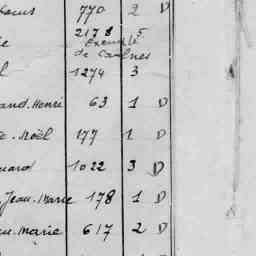 770 2 D
2178 5
Exemplé
de Casernes
1274 3
and. Henri 63 1 D
e. Noël 177 1 D
uard 1022 3 D
Jean. Marie 178 1 D
au. Marie 617 2 D